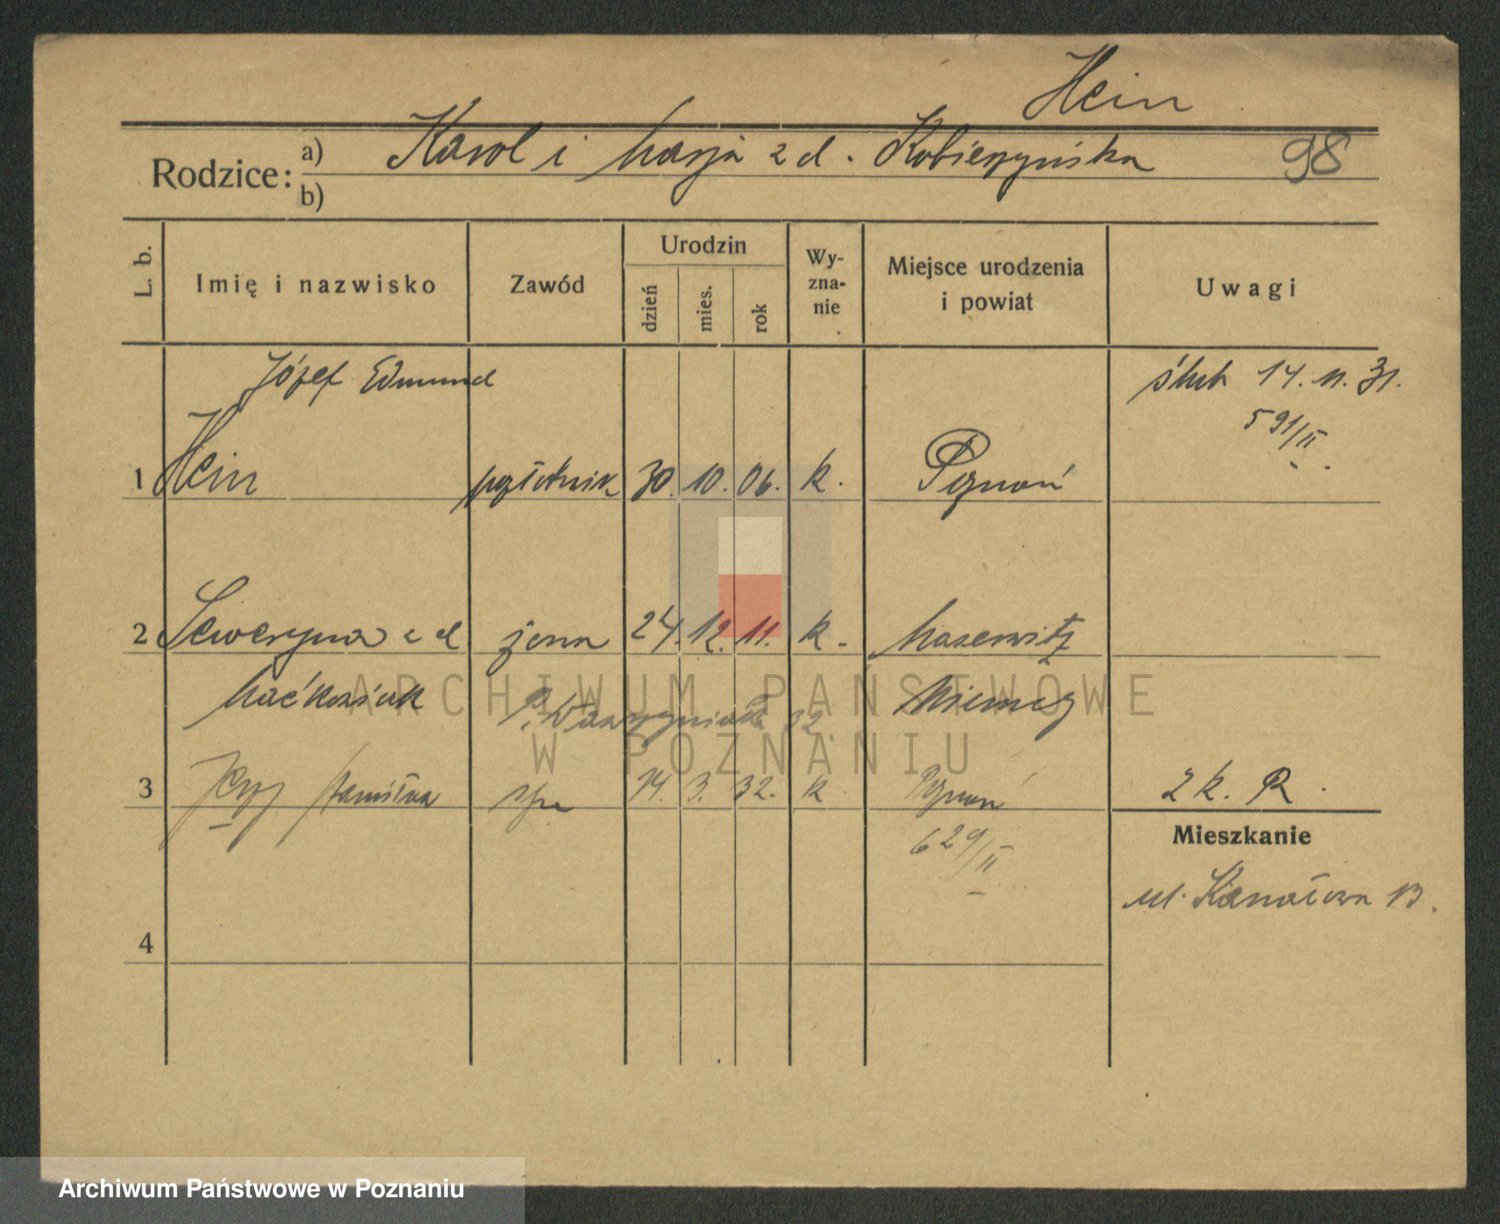 Hein
Rodzice: a) Karol i Marja z d. Kobierzyńska 98
b)
L. b. Imię i nazwisko Zawód Urodzin dzień mies. rok Wy-zna-nie Miejsce urodzenia i powiat Uwagi
Józef Edmund ślub 14. 11. 31.
591/II
1 Hein pozłotnik 30. 10. 06. k. Poznań
2 Seweryna z d żona 24. 12. 11. k. Maserwitz
Maćkowiak Niemcy
3 Jerzy syn 14. 3. 32. k Poznań 2 k. R.
629/II
Mieszkanie
ul. Kanałowa 13.
4
ARCHIWUM PAŃSTWOWE
W POZNANIU
Archiwum Państwowe w Poznaniu